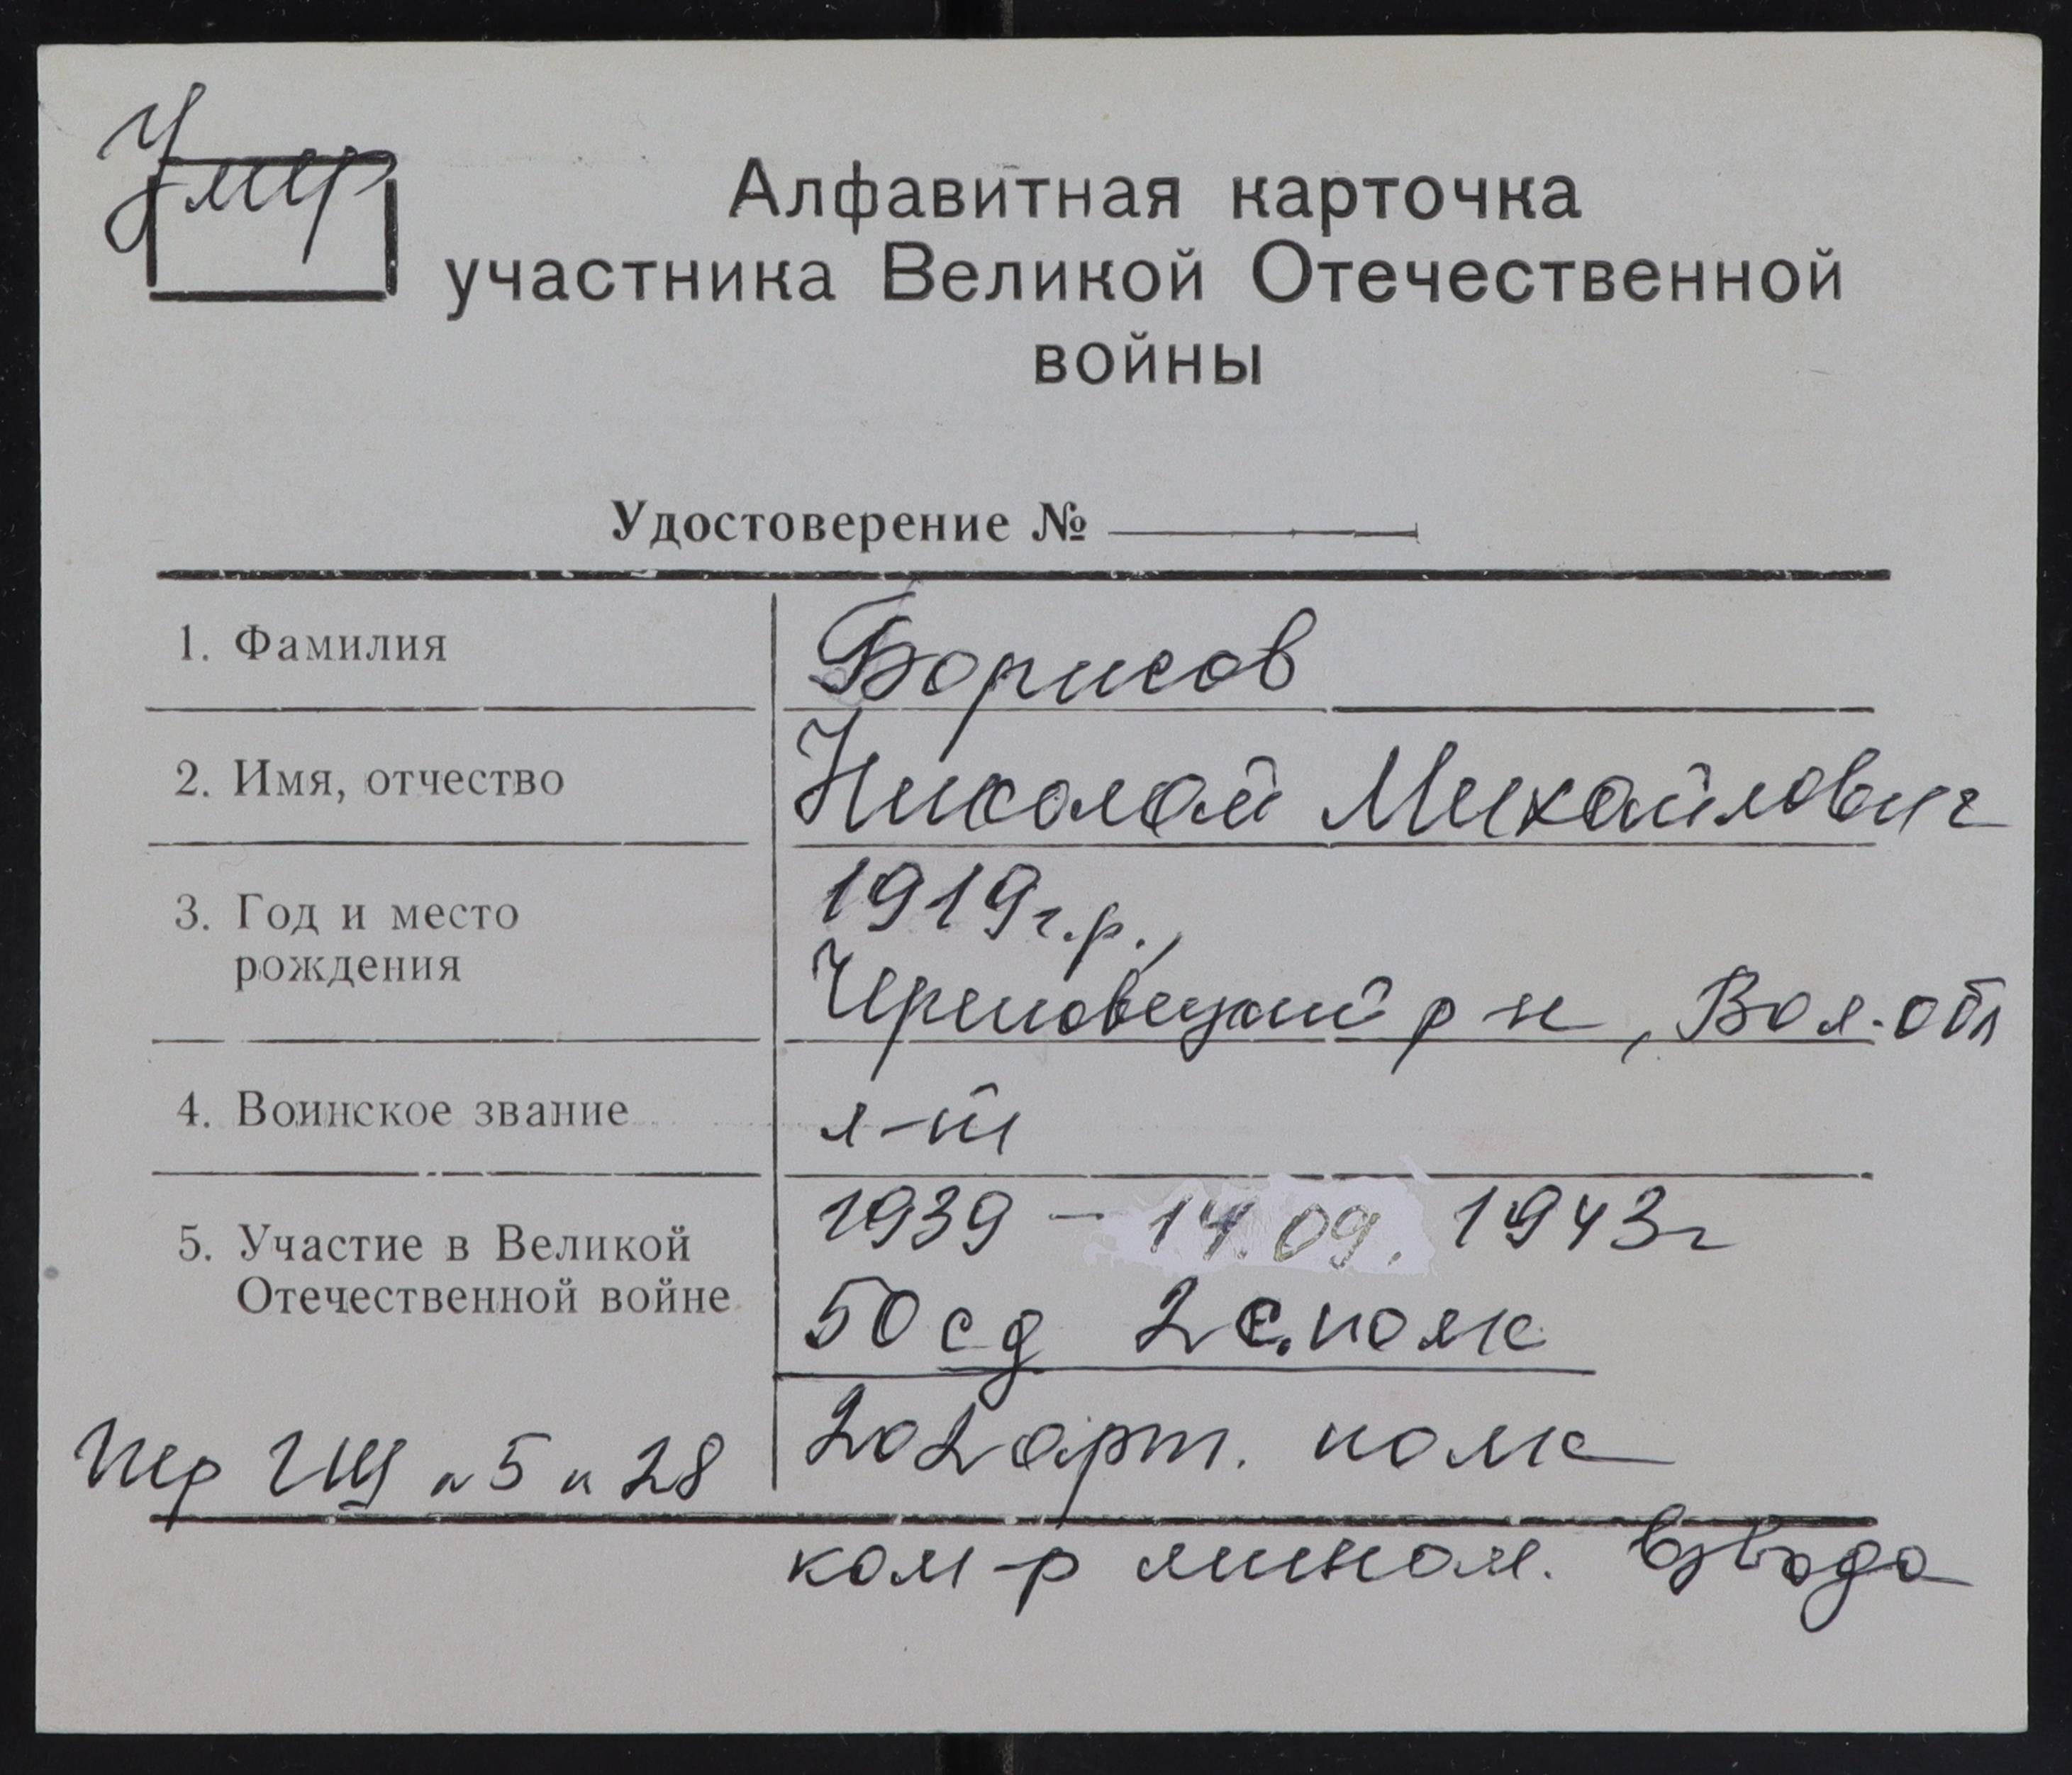 Умер
Алфавитная карточка
участника Великой Отечественной
войны
Удостоверение №
1. Фамилия Борисов
2. Имя, отчество Николай Михайлович
3. Год и место 1919 г.р.,
рождения Череповецкий р-н, Вол. обл
4. Воинское звание л-т
5. Участие в Великой 1939 - 14.09. 1943 г
Отечественной войне 50 сд 2 с. полк
202 арт. полк
ком-р мином. взвода